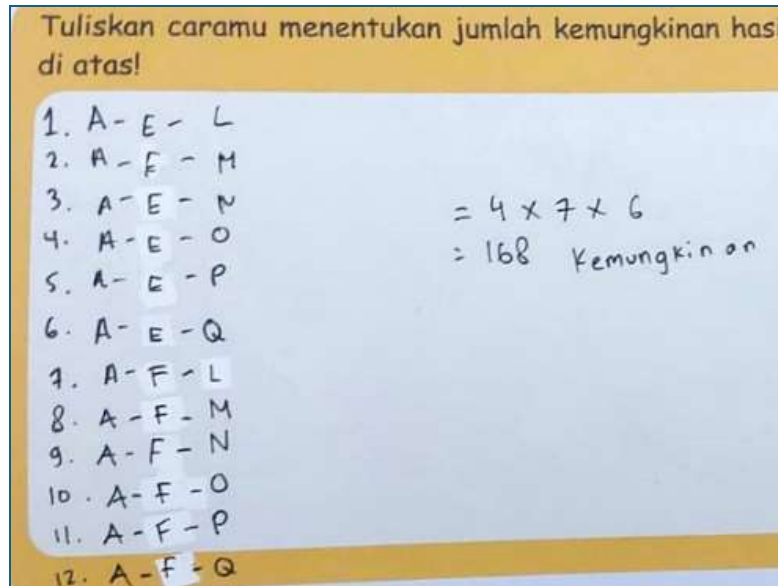 Tuliskan caramu menentukan jumlah kemungkinan has
di atas!
1. A - E - L
2. A - E - M
3. A - E - N
4. A - E - O
5. A - E - P
6. A - E - Q
7. A - F - L
8. A - F - M
9. A - F - N
10. A - F - O
11. A - F - P
12. A - F - Q
= 4 x 7 x 6
= 168 Kemungkinan